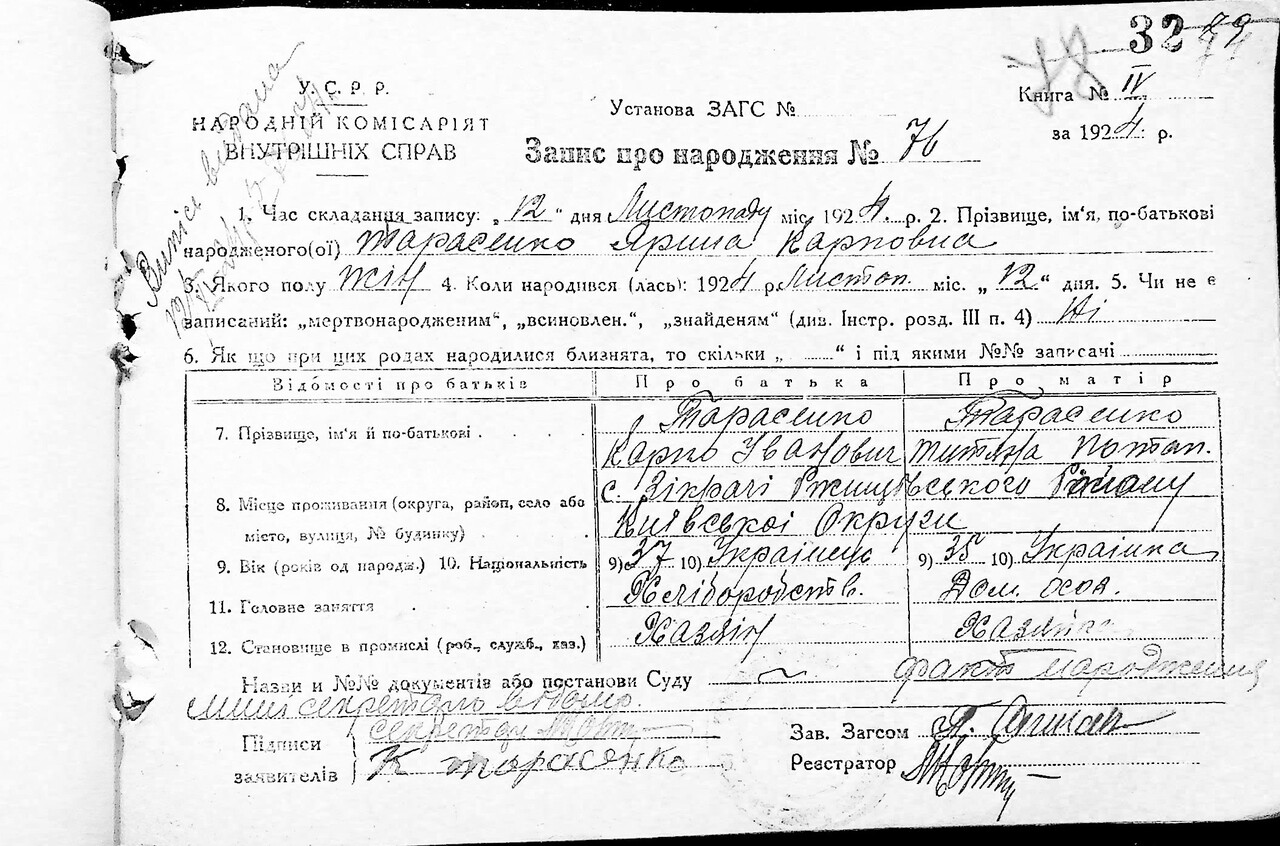 32 79
78
У. С. Р. Р.
НАРОДНІЙ КОМІСАРІЯТ
ВНУТРІШНІХ СПРАВ
Установа ЗАГС №
Книга № IV
за 1924 р.
Запис про народження № 76
Випіс видана
1. Час складання запису: „12“ дня Листопаду міс. 1924. р. 2. Прізвище, ім'я, по-батькові
народженого(ої) Тарасенко Ярина Карповна
3. Якого полу жін 4. Коли народився (лась): 1924 р. Листоп. міс. „12“ дня. 5. Чи не є
записаний: „мертвонародженим“, „всиновлен.“, „знайденям“ (див. Інстр. розд. III п. 4) Ні
6. Як що при цих родах народилися близнята, то скільки „ “ і під якими №№ записачі
Відомості про батьків Про батька Про матір
7. Прізвище, ім'я й по-батькові Тарасенко Тарасенко
Карпо Іванович Титяна Потап.
8. Місце проживання (округа, район, село або с. Зікрачі Ржищівського Району
місто, вулиця, № будинку) Київської Округи
9. Вік (років од народж.) 10. Національність 9) 37 10) Українець 9) 35 10) Українка
11. Головне заняття Хліборобств. Дом. осоп.
12. Становище в промислі (роб., служб., хаз.) Хазяін Хазяйка
Назви и №№ документів або постанови Суду факт народження
мині секретарь відомо
Підписи секретар
заявителів К Тарасенко
Зав. Загсом
Реєстратор